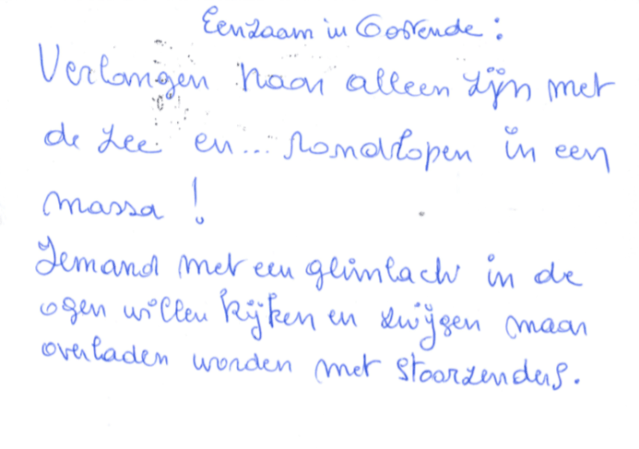 Eenzaam in Oostende :
Verlangen naar alleen zijn met
de zee en... rondlopen in een
massa !
Iemand met een glimlach in de
ogen willen kijken en zwijgen maar
overladen worden met stoorzenders.